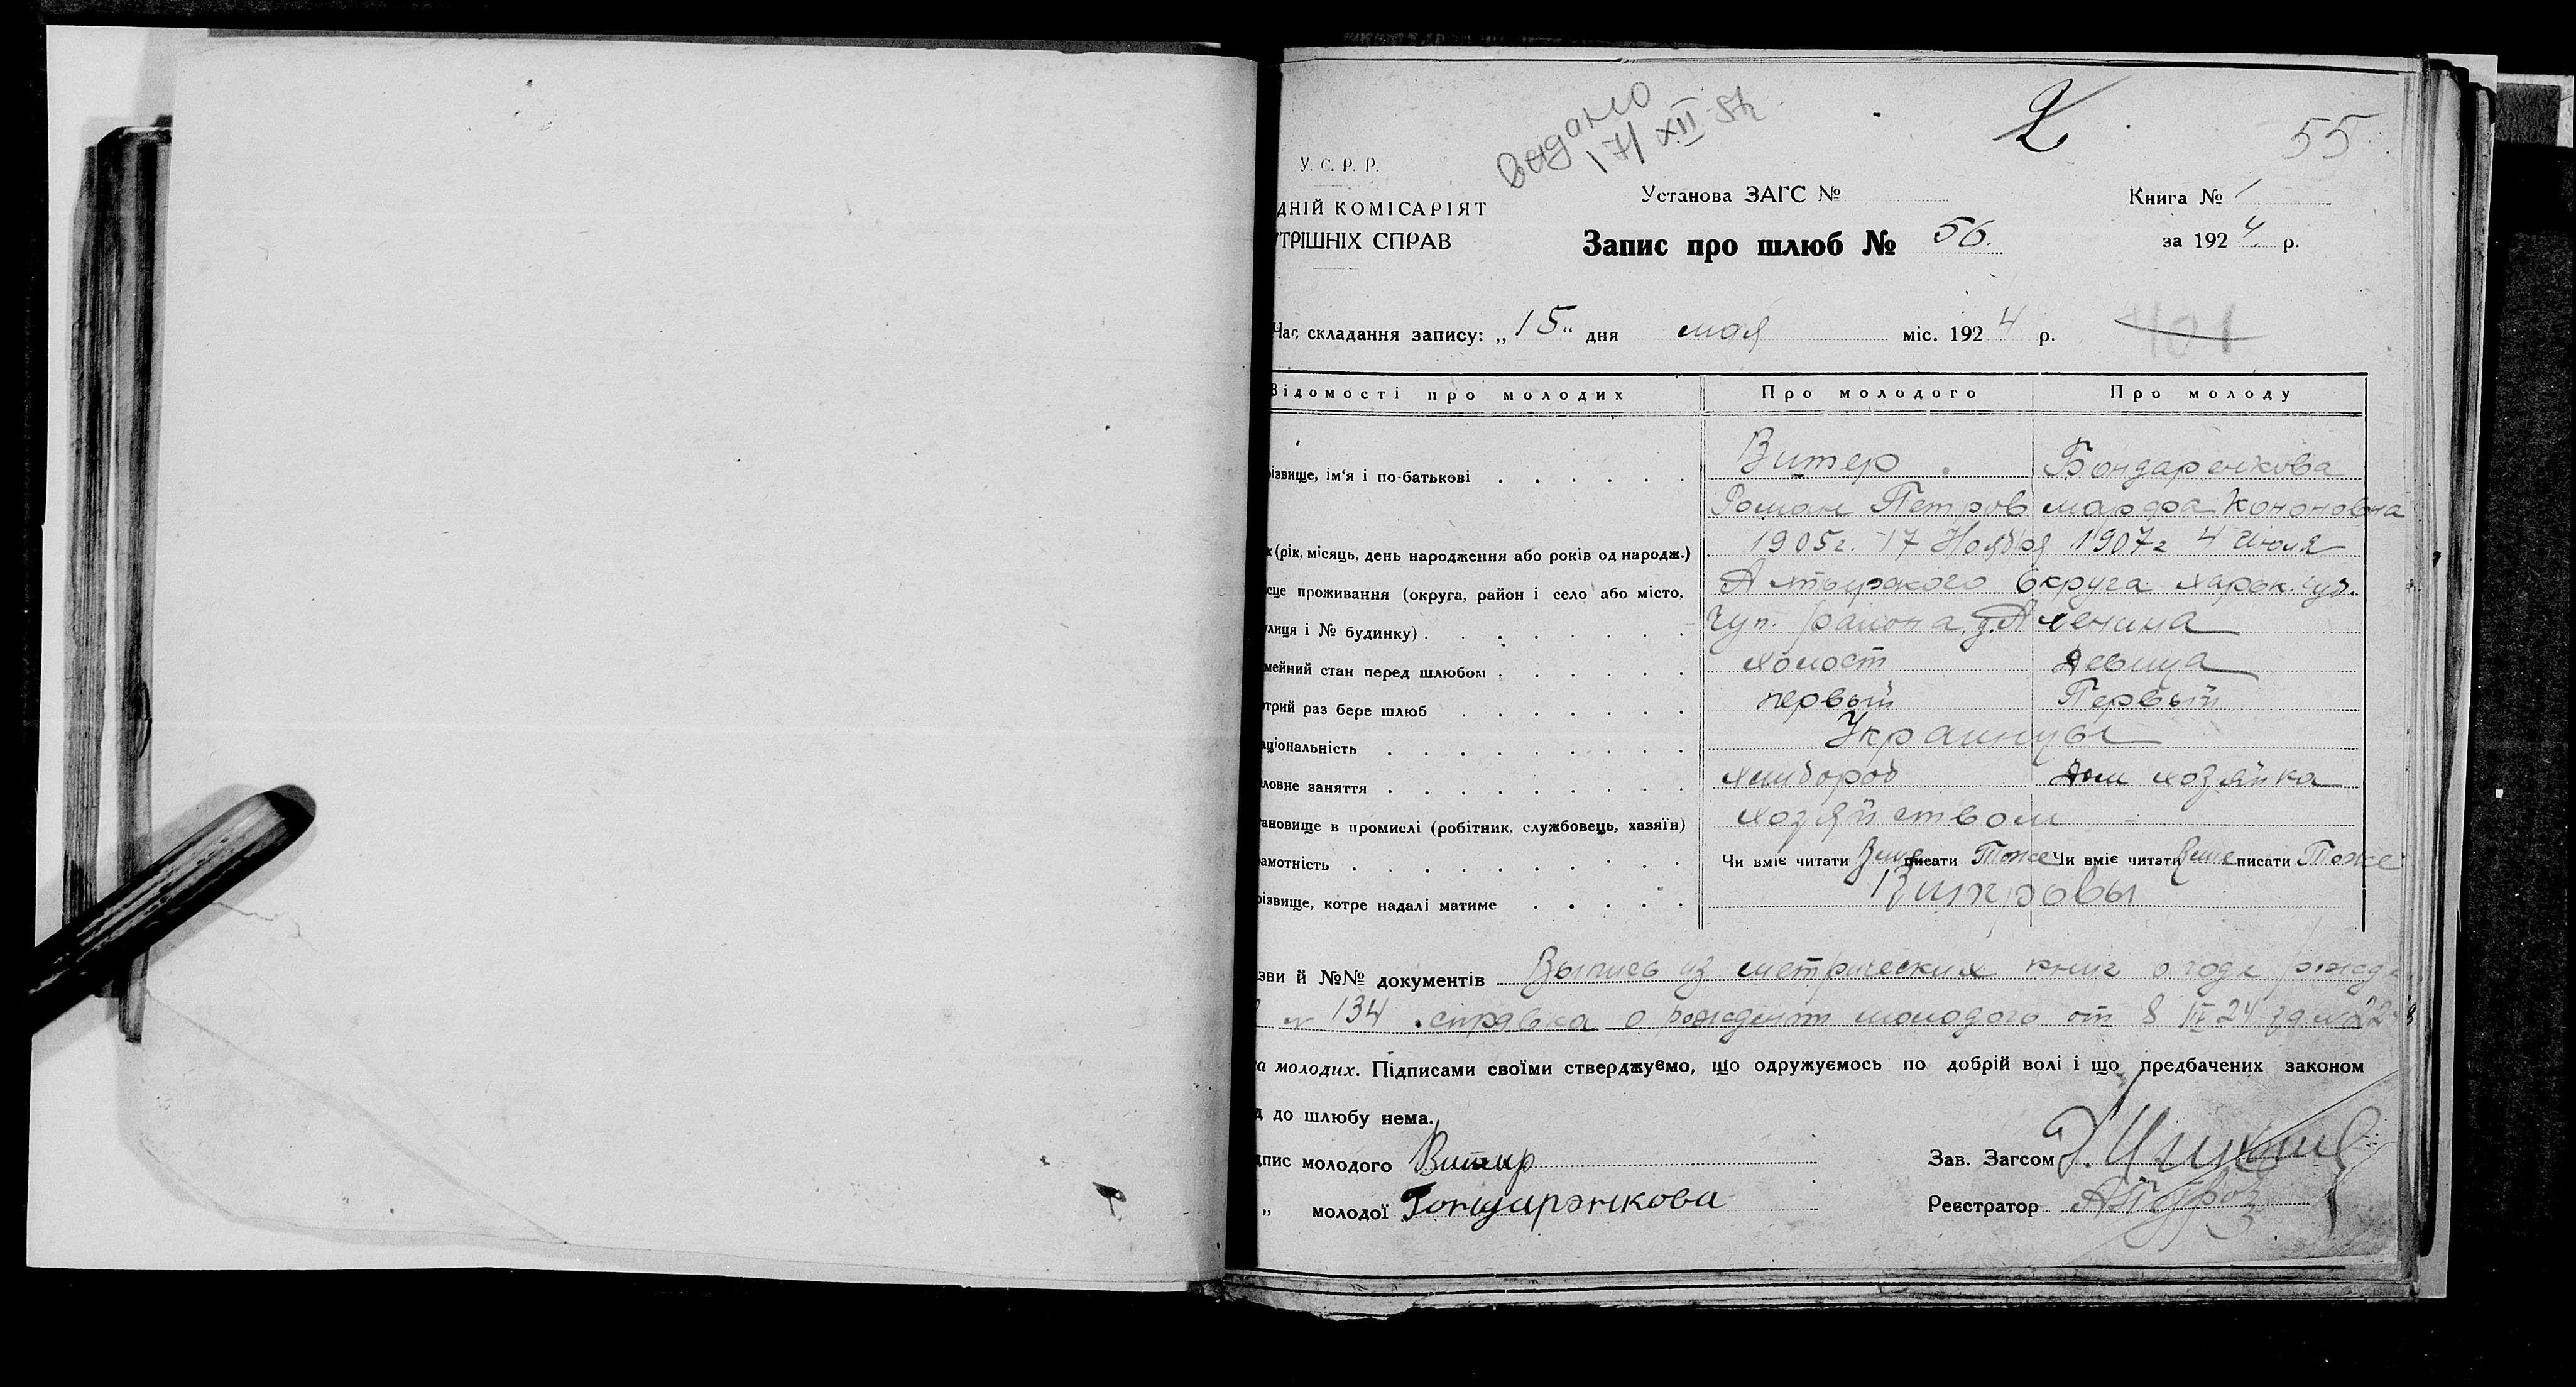 видано
17/XII
55
У. С. Р. Р.
ДНІЙ КОМІСАРІЯТ
ТРІШНІХ СПРАВ
Установа ЗАГС №
Книга № 1
Запис про шлюб № 56.
за 1924 р.
Час складання запису: „15" дня мая міс. 1924 р.
Відомості про молодих Про молодого Про молоду
різвище, ім'я і по-батькові Витер Бондаренкова
Роман Петров марфа Кононовна
к (рік, місяць, день народження або років од народж.) 1905г. 17 Ноября 1907г 4 Июля
сце проживання (округа, район і село або місто, Ахтырского Округа харьк. губ.
лиця і № будинку) района
мейний стан перед шлюбом холост девица
отрий раз бере шлюб первый Первый
аціональність Украинцы
ловне заняття хлибороб дом хозяйка
ановище в промислі (робітник, службовець, хазяїн) хозяйством
амотність Чи вміє читати писати Тоже Чи вміє читати писати Тоже
різвище, котре надалі матиме Витровы
зви й №№ документів Выпись из метрических книг о годе рожд
134 справка о рождении молодого от 8 24
а молодих. Підписами своїми стверджуємо, що одружуємось по добрій волі і що предбачених законом
д до шлюбу нема.
дпис молодого Витир
Зав. Загсом
„ молодої Гонщарэнкова
Реєстратор